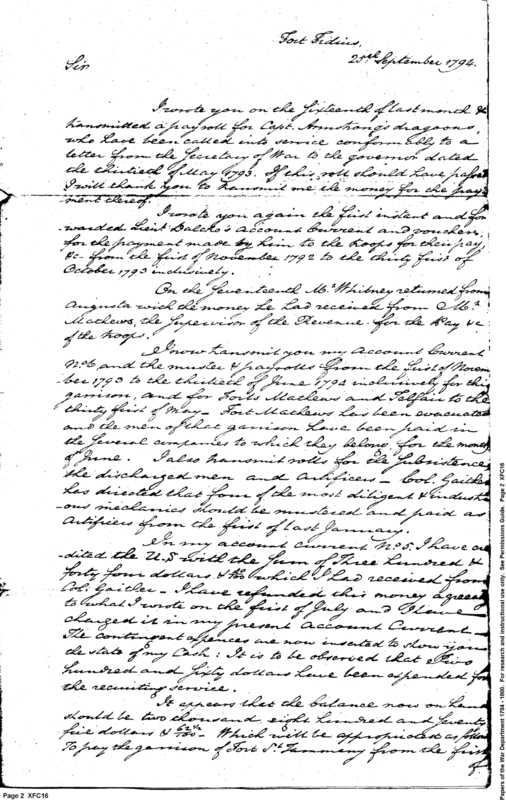 Fort Fidius,
25th September 1794.
Sir
I wrote you on the Sixteenth of last month &
transmitted a payroll for Capt. Armstrong's dragoons,
who have been called into service conformably to a
letter from the Secretary of War to the governor dated
the thirtieth of May 1793. If this roll should have passed
I will thank you to transmit me the money for the pay-
ment thereof.
I wrote you again the first instant and for
warded Lieut Dalcho's Account Current and vouchers
for the payment made by him to the troops for their pay
&c. from the first of November 1792 to the thirty first of
October 1793 inclusively.
On the Seventeenth Mr. Whitney returned from
Augusta with the money he had received from Mr.
Mathews, the Supervisor of the Revenue for the Pay &c
of the troops.
I now transmit you my Account Current
No. 6 and the muster & payrolls from the first of Novem
ber 1793 to the thirtieth of June 1794 inclusively for this
garrison, and for Forts Mathews and Telfair to the
thirty first of May - Fort Mathews has been evacuated
and the men of that garrison have been paid in
the several companies to which they belong for the month
of June. I also transmit rolls for the Subsistence
the discharged men and Artificers - Col. Gaither
has directed that four of the most diligent & industri
ous mechanics should be mustered and paid as
Artificers from the first of last January.
In my account current No. 5. I have cre
dited the U.S with the sum of Three hundred &
forty four dollars & which I had received from
Col. Gaither - I have refunded this money agreea
to what I wrote on the first of July and I have
charged it in my present Account Current -
The contingent expences are now inserted to show you
the state of my Cash: It is to be observed that two
hundred and Sixty dollars have been expended for
the recruiting service.
It appears that the balance now on hand
should be two thousand eight hundred and seventy
five dollars & /100 - Which will be appropriated as follows
To pay the garrison of Fort St. Tammany from the first
of
Page 2 XFC16
Papers of the War Department 1784 - 1800. For research and instructional use only. See Permissions Guide. Page 2 XFC16